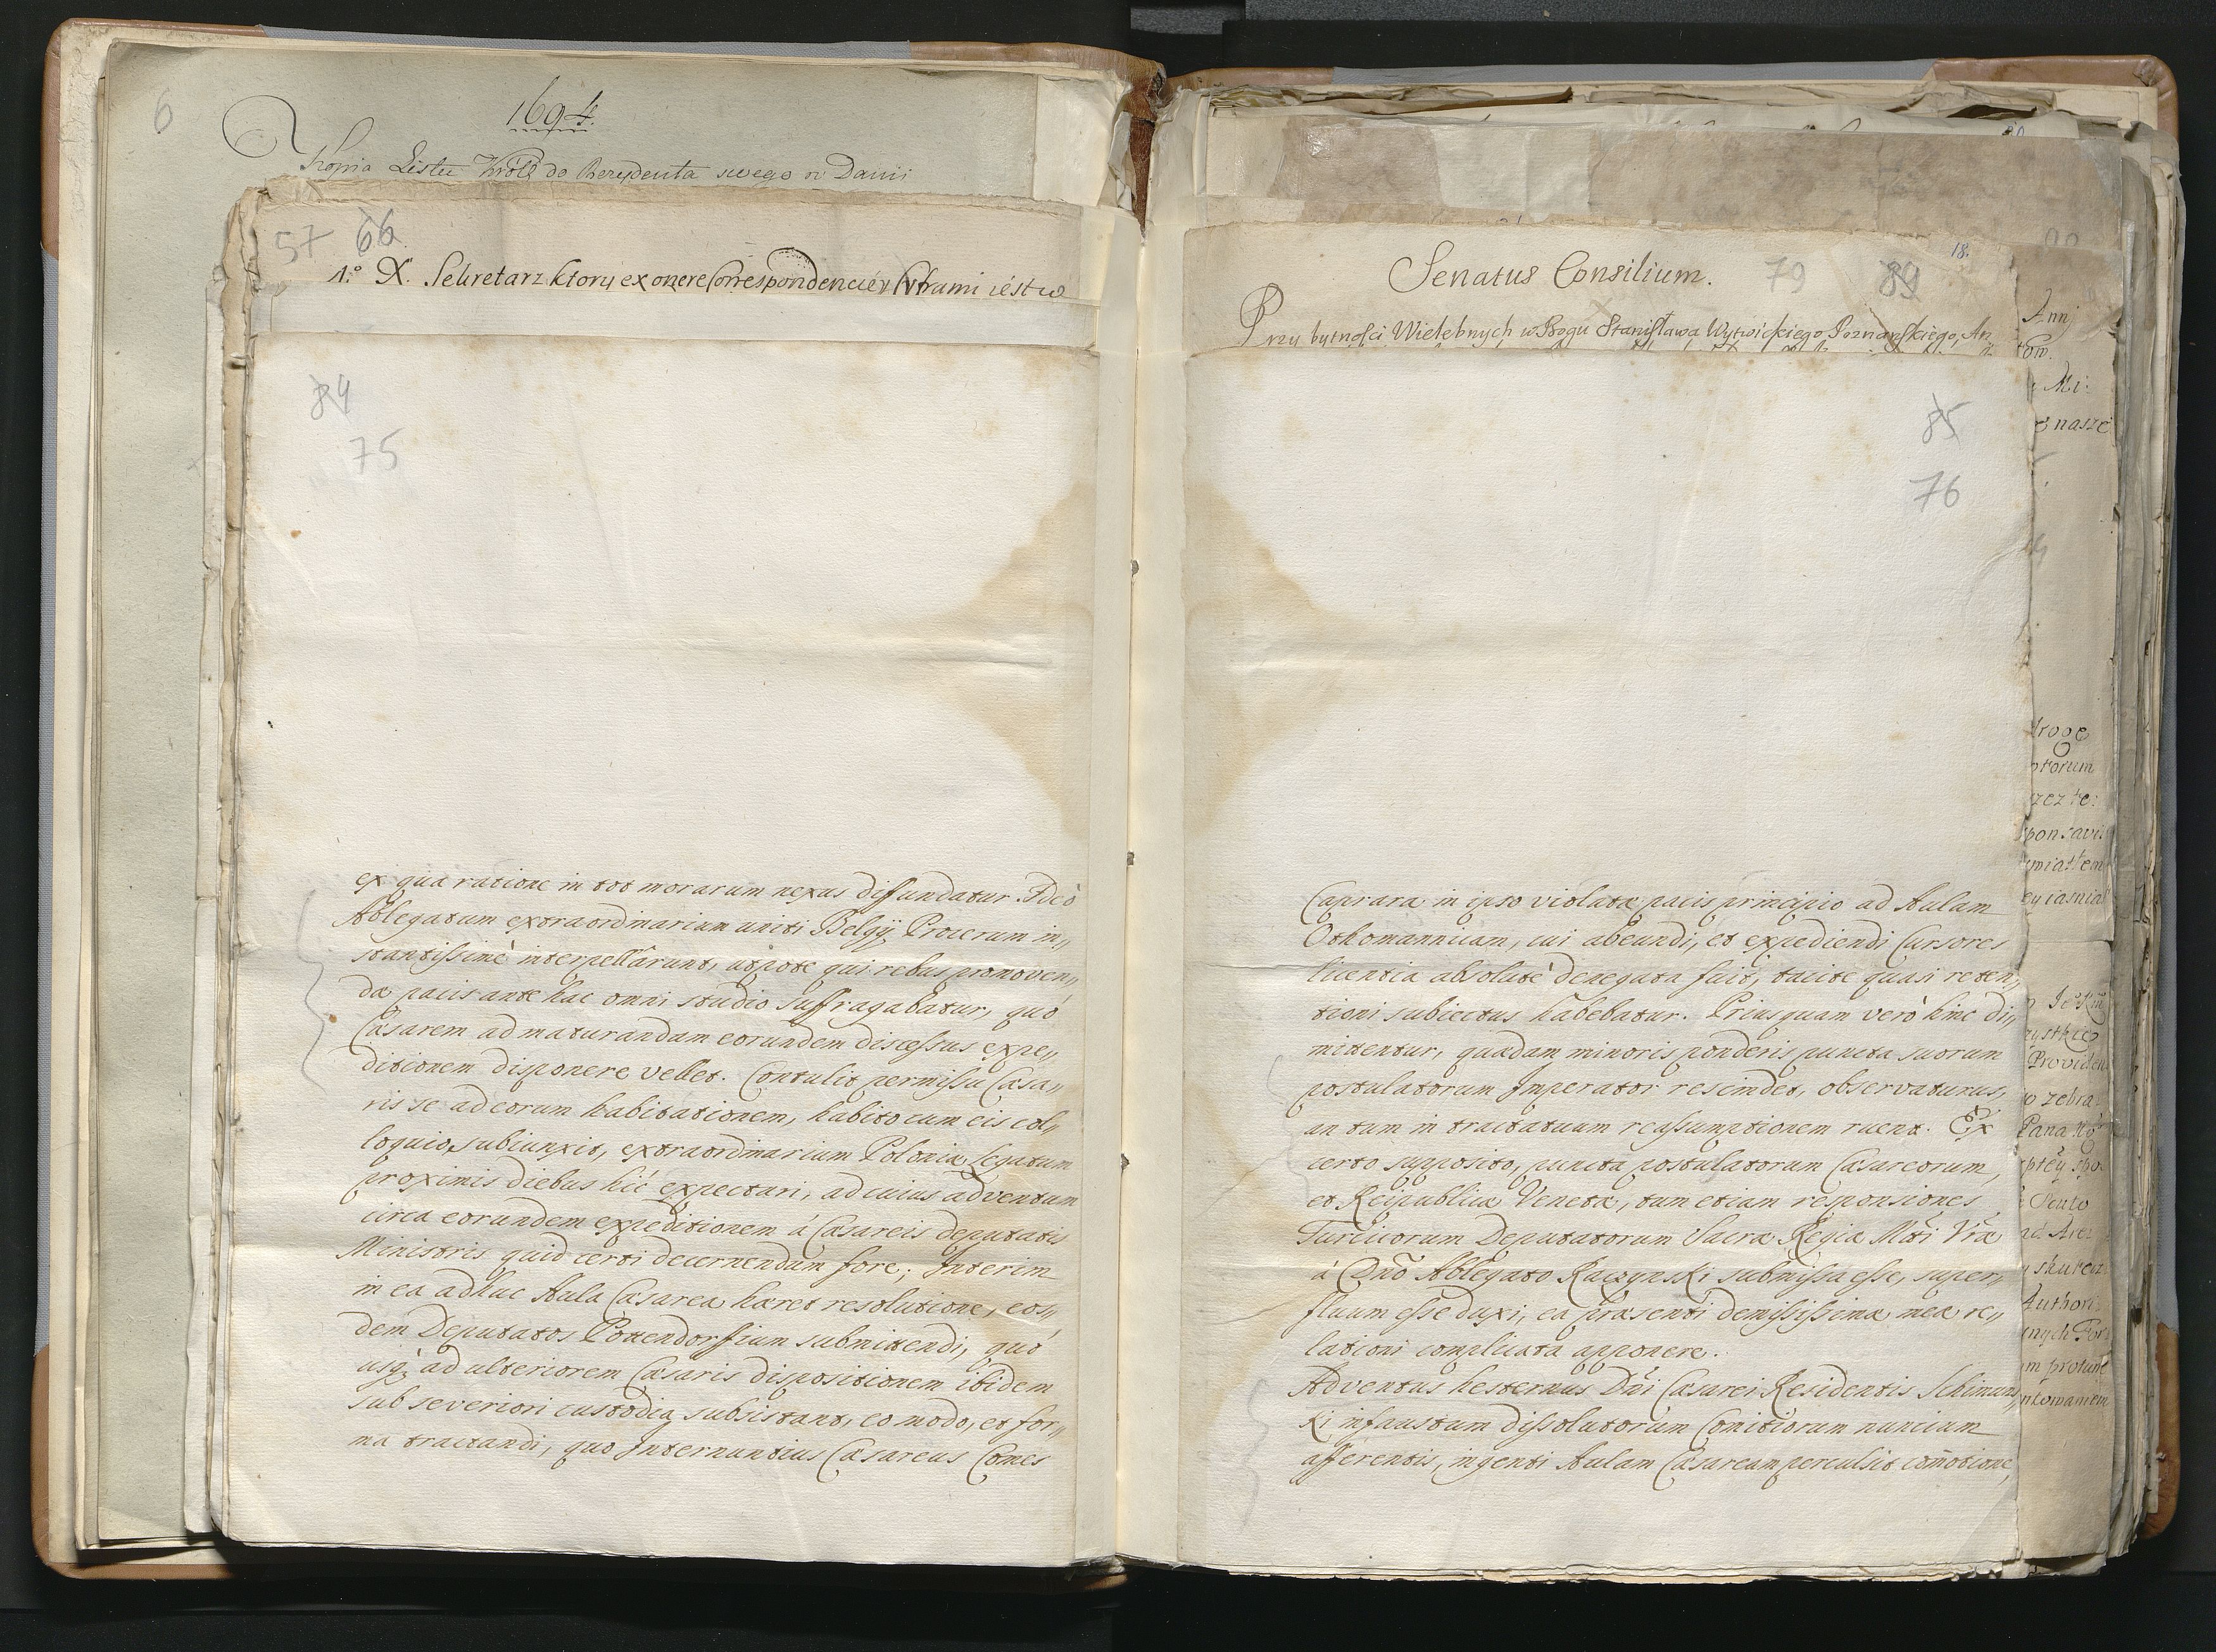 6
1694.
Kopia Listu Króla do Rezydenta swego w Danii
57 66
1.° X. Sekretarz ktory ex onere Correspondenciey Cyframi iest w
84
75
ex qua ratione in tot morarum nexus diffundatur. Ideò
Ablegatum extraordinarium uniti Belgÿ Procerum in„
stantissimè interpellârunt, utpote qui rebus promoven„
dæ pacis ante hac omni studio suffragabatur, quò
Cæsarem ad maturandam eorundem discessus expe„
ditionem disponere vellet. Contulit permissu Cæsa„
ris se ad eorum habitationem, habito cum eis col„
loquio, subiunxit, extraordinarium Poloniæ Legatum
proximis diebus hîc expectari, ad cuius adventum
circa eorundem expeditionem à Cæsareis deputatis
Ministris quid certi decernendum fore; Interim
in ea adhuc Aula Cæsarea hæret resolutione, eos„
dem Deputatos Pottendorffium submittendi, quò
usq; ad ulteriorem Cæsaris dispositionem ibidem
sub severiori custodia subsistant, eo modo, et for„
ma tractandi, quo Internuntius Cæsareus Comes
Senatus Consilium. 79 89 18.
Przy bytności Wielebnych w Bogu Stanisława Wytwickiego Poznanskiego, An
85
76
Caprara in ipso violatæ pacis principio ad Aulam
Othomannicam, cui abeundi, et expediendi Cursores
licentia absolutè denegata fuit, tacite quasi reten„
tioni subiectus habebatur. Priusquam verò hinc di„
mittentur, quædam minoris ponderis puncta suorum
postulatorum Imperator rescindet, observaturus,
an tum in tractatuum reassumptionem ruent. Ex
certo supposito, puncta postulatorum Cæsareorum,
et Reipublicæ Venetæ, tum etiam responsiones
Turcicorum Deputatorum Sacræ Regiæ Mti Vræ
à Dnō Ablegato Raczynski submissa esse, super„
fluum esse duxi, ea præsenti demississimæ meæ re„
lationi complicata apponere.
Adventus hesternus Dni Cæsarei Residentis Schimuns„
ki infaustum dissolutorum Comitiorum nuncium
afferentis, ingenti Aulam Cæsaream perculsit com̄otione,
Annj
tow.
Mi:
nasze
droge
torum
zez te:
Authori